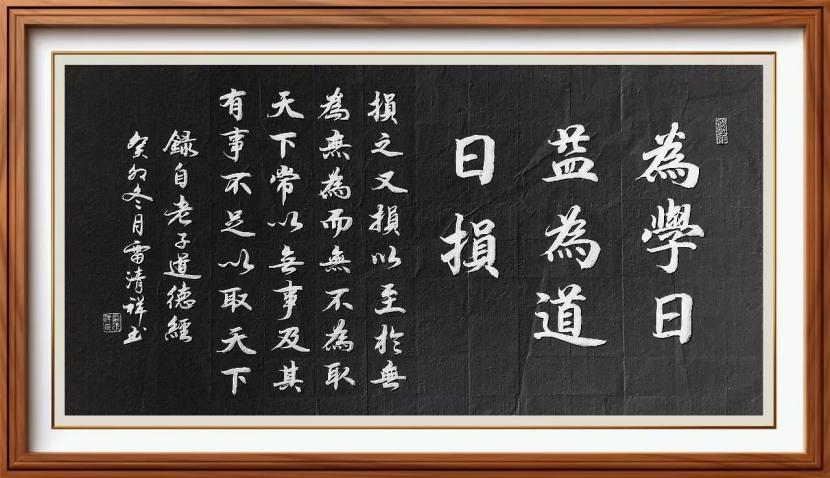 為學日
益為道
日損
損之又損以至於無
為無為而無不為取
天下常以無事及其
有事不足以取天下
錄自老子道德經
癸卯冬月雷清祥书